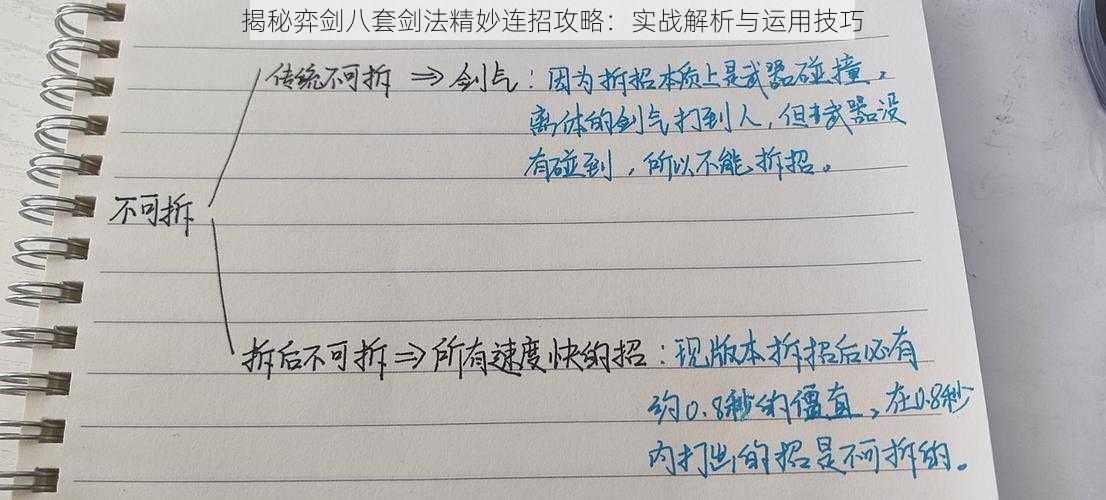 揭秘弈剑八套剑法精妙连招攻略：实战解析与运用技巧
传统不可拆 ⇒ 剑气：因为拆招本质上是武器碰撞，
离体的剑气打到人，但武器没
有碰到，所以不能拆招。
不可拆
拆后不可拆 ⇒ 所有速度快的招：现版本拆招后必有
约0.8秒的僵直，在0.8秒
内打出的招是不可拆的。